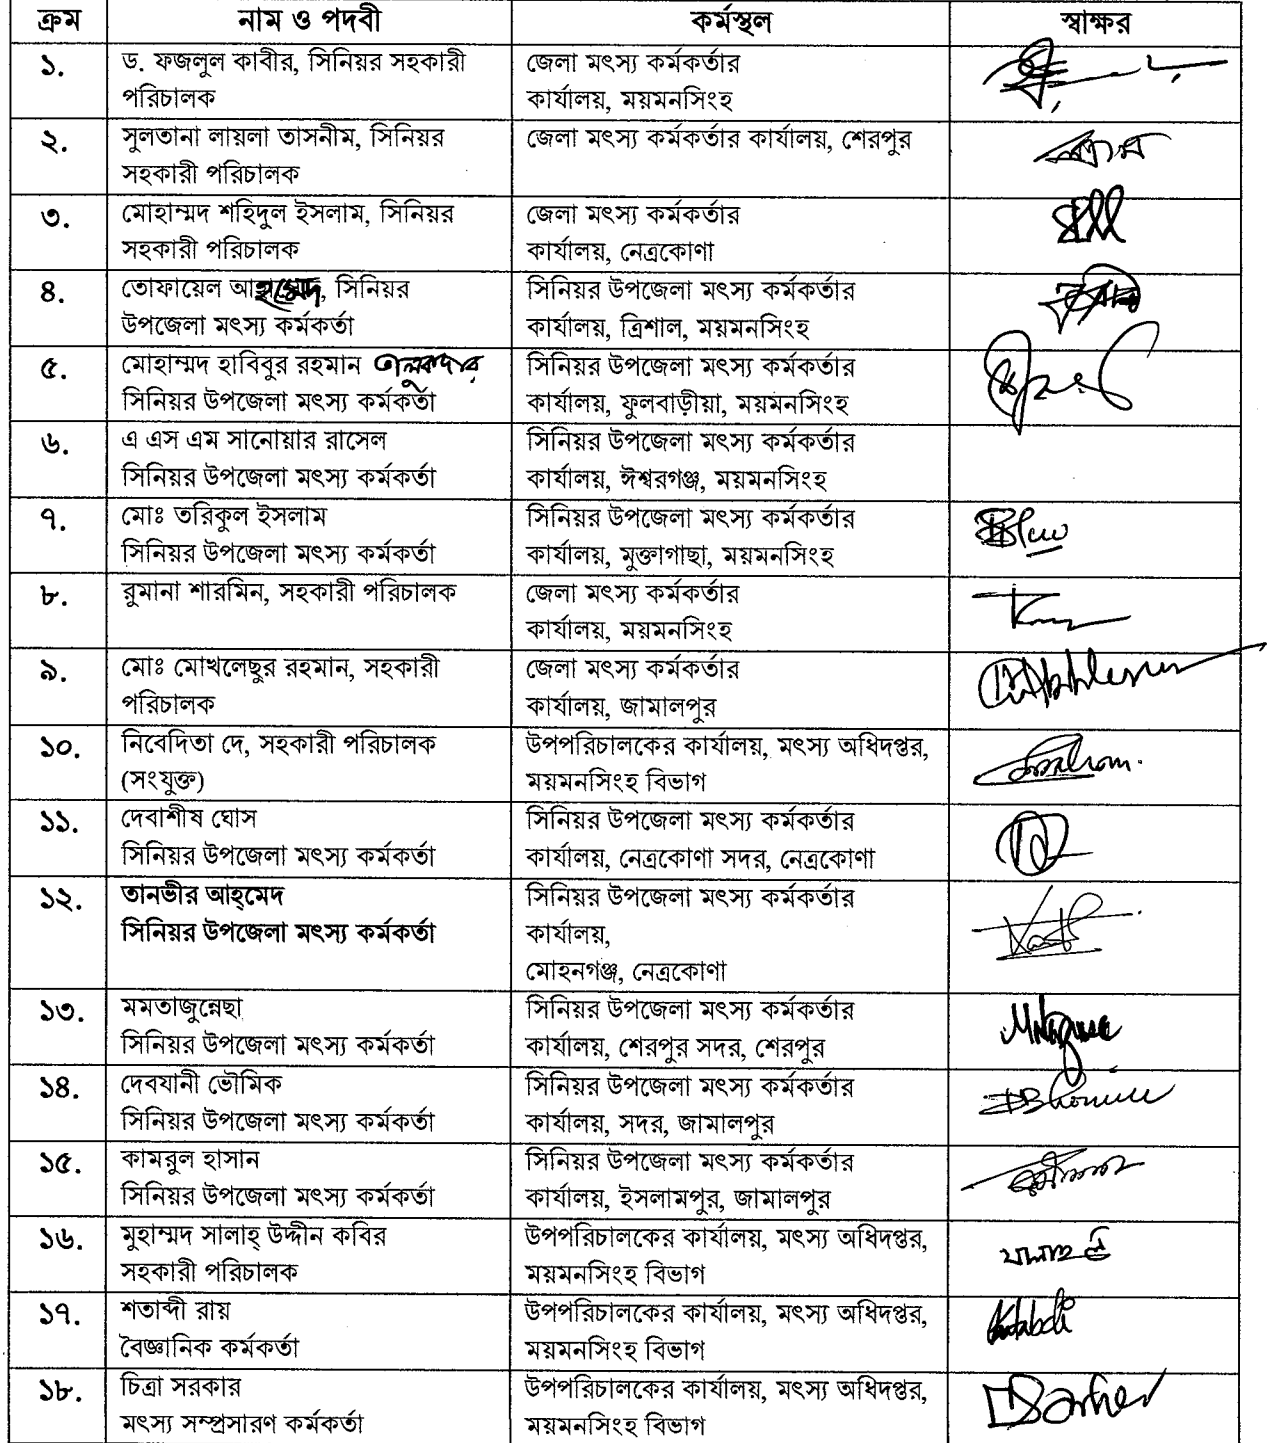 ক্রম নাম ও পদবী কর্মস্থল স্বাক্ষর
১. ড. ফজলুল কাবীর, সিনিয়র সহকারী জেলা মৎস্য কর্মকর্তার
পরিচালক কার্যালয়, ময়মনসিংহ
২. সুলতানা লায়লা তাসনীম, সিনিয়র জেলা মৎস্য কর্মকর্তার কার্যালয়, শেরপুর
সহকারী পরিচালক
৩. মোহাম্মদ শহিদুল ইসলাম, সিনিয়র জেলা মৎস্য কর্মকর্তার
সহকারী পরিচালক কার্যালয়, নেত্রকোণা
৪. তোফায়েল আহমেদ, সিনিয়র সিনিয়র উপজেলা মৎস্য কর্মকর্তার
উপজেলা মৎস্য কর্মকর্তা কার্যালয়, ত্রিশাল, ময়মনসিংহ
৫. মোহাম্মদ হাবিবুর রহমান তালুকদার সিনিয়র উপজেলা মৎস্য কর্মকর্তার
সিনিয়র উপজেলা মৎস্য কর্মকর্তা কার্যালয়, ফুলবাড়ীয়া, ময়মনসিংহ
৬. এ এস এম সানোয়ার রাসেল সিনিয়র উপজেলা মৎস্য কর্মকর্তার
সিনিয়র উপজেলা মৎস্য কর্মকর্তা কার্যালয়, ঈশ্বরগঞ্জ, ময়মনসিংহ
৭. মোঃ তরিকুল ইসলাম সিনিয়র উপজেলা মৎস্য কর্মকর্তার
সিনিয়র উপজেলা মৎস্য কর্মকর্তা কার্যালয়, মুক্তাগাছা, ময়মনসিংহ
৮. রুমানা শারমিন, সহকারী পরিচালক জেলা মৎস্য কর্মকর্তার
কার্যালয়, ময়মনসিংহ
৯. মোঃ মোখলেছুর রহমান, সহকারী জেলা মৎস্য কর্মকর্তার
পরিচালক কার্যালয়, জামালপুর
১০. নিবেদিতা দে, সহকারী পরিচালক উপপরিচালকের কার্যালয়, মৎস্য অধিদপ্তর,
(সংযুক্ত) ময়মনসিংহ বিভাগ
১১. দেবাশীষ ঘোস সিনিয়র উপজেলা মৎস্য কর্মকর্তার
সিনিয়র উপজেলা মৎস্য কর্মকর্তা কার্যালয়, নেত্রকোণা সদর, নেত্রকোণা
১২. তানভীর আহ্‌মেদ সিনিয়র উপজেলা মৎস্য কর্মকর্তার
সিনিয়র উপজেলা মৎস্য কর্মকর্তা কার্যালয়,
মোহনগঞ্জ, নেত্রকোণা
১৩. মমতাজুন্নেছা সিনিয়র উপজেলা মৎস্য কর্মকর্তার
সিনিয়র উপজেলা মৎস্য কর্মকর্তা কার্যালয়, শেরপুর সদর, শেরপুর
১৪. দেবযানী ভৌমিক সিনিয়র উপজেলা মৎস্য কর্মকর্তার
সিনিয়র উপজেলা মৎস্য কর্মকর্তা কার্যালয়, সদর, জামালপুর
১৫. কামরুল হাসান সিনিয়র উপজেলা মৎস্য কর্মকর্তার
সিনিয়র উপজেলা মৎস্য কর্মকর্তা কার্যালয়, ইসলামপুর, জামালপুর
১৬. মুহাম্মদ সালাহ্ উদ্দীন কবির উপপরিচালকের কার্যালয়, মৎস্য অধিদপ্তর,
সহকারী পরিচালক ময়মনসিংহ বিভাগ
১৭. শতাব্দী রায় উপপরিচালকের কার্যালয়, মৎস্য অধিদপ্তর,
বৈজ্ঞানিক কর্মকর্তা ময়মনসিংহ বিভাগ
১৮. চিত্রা সরকার উপপরিচালকের কার্যালয়, মৎস্য অধিদপ্তর,
মৎস্য সম্প্রসারণ কর্মকর্তা ময়মনসিংহ বিভাগ